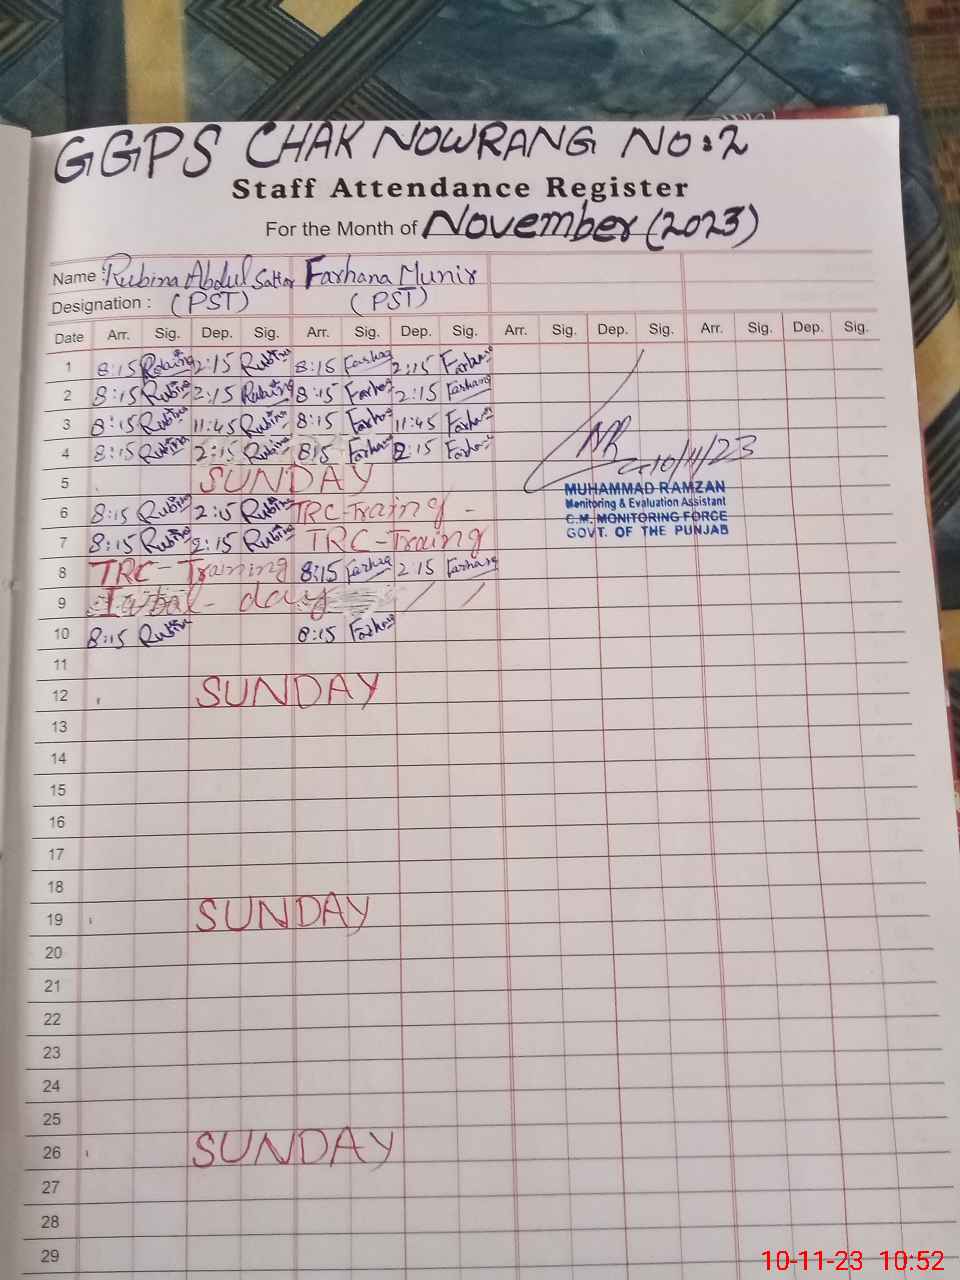 GGPS CHAK NOWRANG NO:2
Staff Attendance Register
For the Month of November (2023)
Name : Rubina Abdul Sattar Farhana Munir
Designation : (PST) (PST)
Date Arr. Sig. Dep. Sig. Arr. Sig. Dep. Sig. Arr. Sig. Dep. Sig. Arr. Sig. Dep. Sig.
1 8:15 Rubina 2:15 Rubina 8:15 Farhana 2:15 Farhana
2 8:15 Rubina 2:15 Rubina 8:15 Farhana 2:15 Farhana
3 8:15 Rubina 11:45 Rubina 8:15 Farhana 11:45 Farhana
4 8:15 Rubina 2:15 Rubina 8:15 Farhana 2:15 Farhana
10/11/23
5 SUNDAY
MUHAMMAD RAMZAN
Monitoring & Evaluation Assistant
C.M. MONITORING FORCE
GOVT. OF THE PUNJAB
6 8:15 Rubina 2:15 Rubina TRC-Traing -
7 8:15 Rubina 2:15 Rubina TRC-Traing
8 TRC-Training 8:15 Farhana 2:15 Farhana
9 Iqbal - day
10 8:15 Rubina 8:15 Farhana
11
12 SUNDAY
13
14
15
16
17
18
19 SUNDAY
20
21
22
23
24
25
26 SUNDAY
27
28
29
10-11-23 10:52